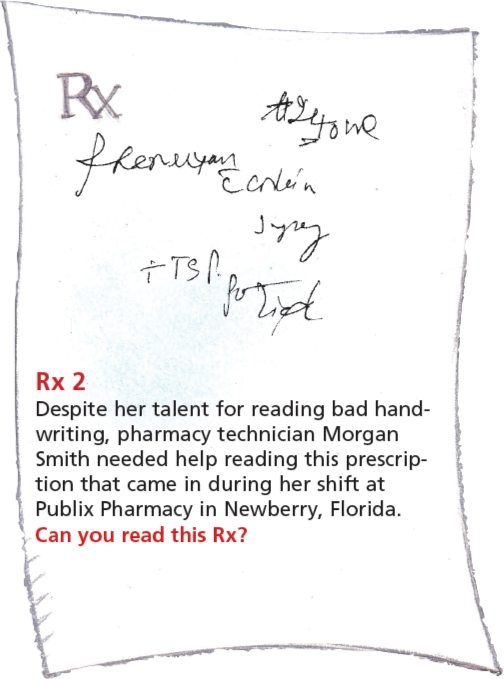 Rx
Phenergan
č Codein
Syrup
TSP.
po Tid
Rx 2
Despite her talent for reading bad hand-
writing, pharmacy technician Morgan
Smith needed help reading this prescrip-
tion that came in during her shift at
Publix Pharmacy in Newberry, Florida.
Can you read this Rx?